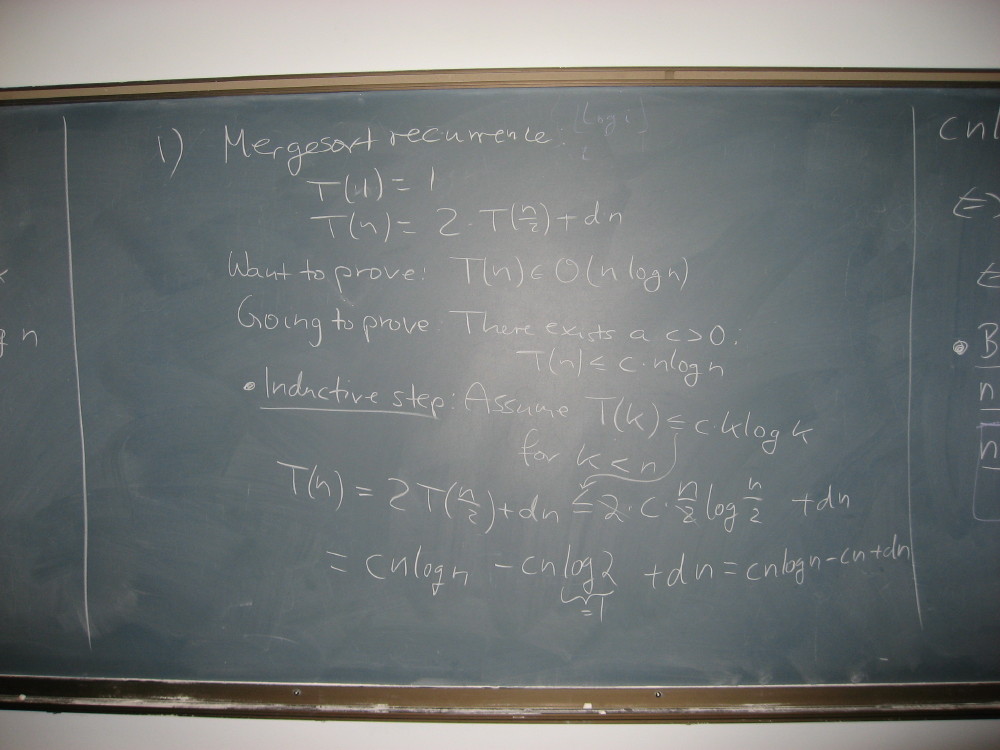 [log i]
1) Mergesort recurrence:
T(1) = 1
T(n) = 2·T(n/2) + dn
Want to prove: T(n) ∈ O(n log n)
Going to prove: There exists a c>0:
T(n) ≤ c·n log n
• Inductive step: Assume T(k) ≤ c·k log k
for k < n
T(n) = 2T(n/2) + dn ≤ 2·c·n/2 log n/2 + dn
= cn log n - cn log 2 + dn = cn log n - cn + dn
=1
n
cn
• B
n
n